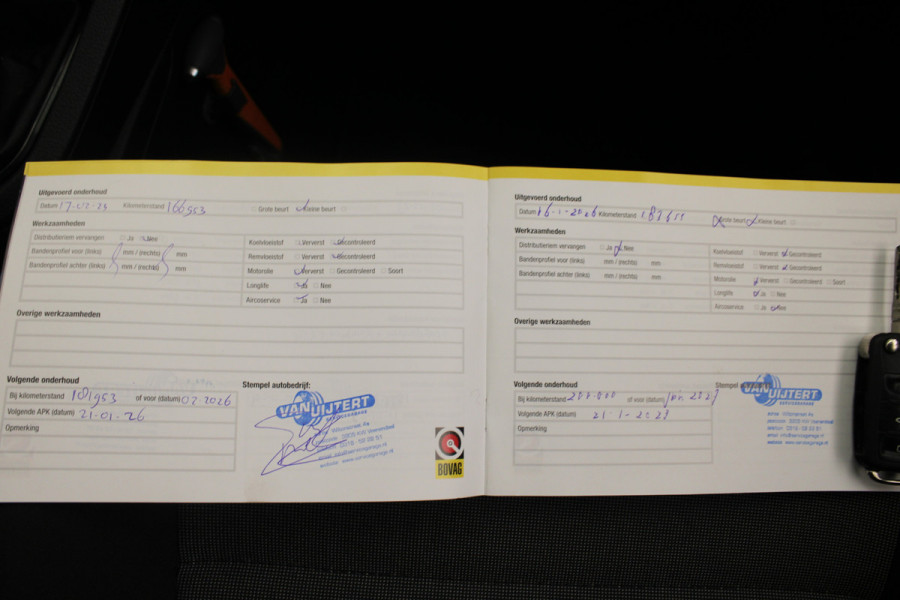 Uitgevoerd onderhoud
Datum 17-02-25 Kilometerstand 166953 Grote beurt Kleine beurt
Werkzaamheden
Distributieriem vervangen Ja Nee
Bandenprofiel voor (links) mm / (rechts) mm
Bandenprofiel achter (links) mm / (rechts) mm
Koelvloeistof Ververst Gecontroleerd
Remvloeistof Ververst Gecontroleerd
Motorolie Ververst Gecontroleerd Soort
Longlife Ja Nee
Aircoservice Ja Nee
Overige werkzaamheden
Volgende onderhoud
Bij kilometerstand 181953 of voor (datum) 02 2026
Volgende APK (datum) 21-01-26
Opmerking
Stempel autobedrijf:
VAN UIJTERT
BOVAG
Uitgevoerd onderhoud
Datum 16-1-2026 Kilometerstand Grote beurt Kleine beurt
Werkzaamheden
Distributieriem vervangen Ja Nee
Bandenprofiel voor (links) mm / (rechts) mm
Bandenprofiel achter (links) mm / (rechts) mm
Koelvloeistof Ververst Gecontroleerd
Remvloeistof Ververst Gecontroleerd
Motorolie Ververst Gecontroleerd Soort
Longlife Ja Nee
Aircoservice Ja Nee
Overige werkzaamheden
Volgende onderhoud
Bij kilometerstand of voor (datum) jan 2027
Volgende APK (datum) 21-1-2028
Opmerking
Stempel
VAN UIJTERT